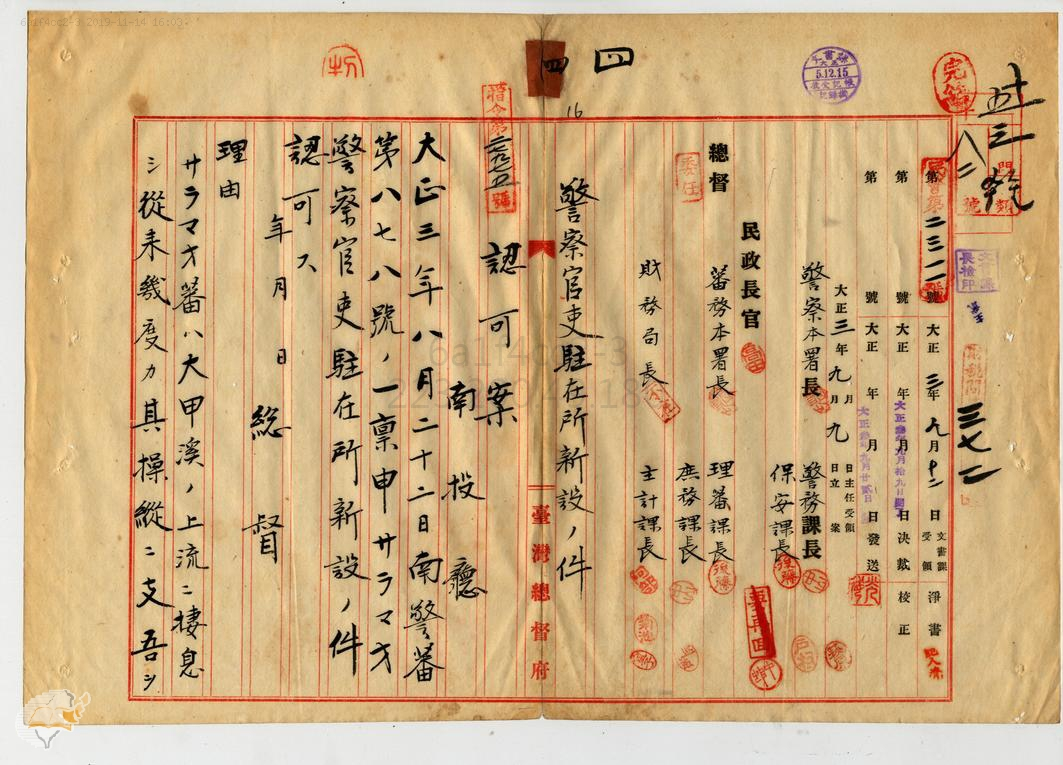 四
四
16
十五門三類八二號
完結
5.12.15
三七二
民警第二三一一號
大正三年九月十二日
文書課受領
淨書
第
號
大正
年
月
日決裁
校正
大正參年九月拾九日
第
號
大正
年
月
日發送
大正參年九月廿貳日
大正三年九月九日
主任受領
立案
警察本署長
警務課長
保安課長
民政長官
總督
委任
蕃務本署長
理蕃課長
庶務課長
財務局長
主計課長
警察官吏駐在所新設ノ件
臺灣總督府
指令第
號
認可案
南投廳
大正三年八月二十二日南警蕃
第八七八號ノ一稟申サラマオ
警察官吏駐在所新設ノ件
認可ス
年月日
總督
理由
サラマオ蕃ハ大甲溪ノ上流ニ棲息
シ從来幾度カ其操縱ニ支吾シ